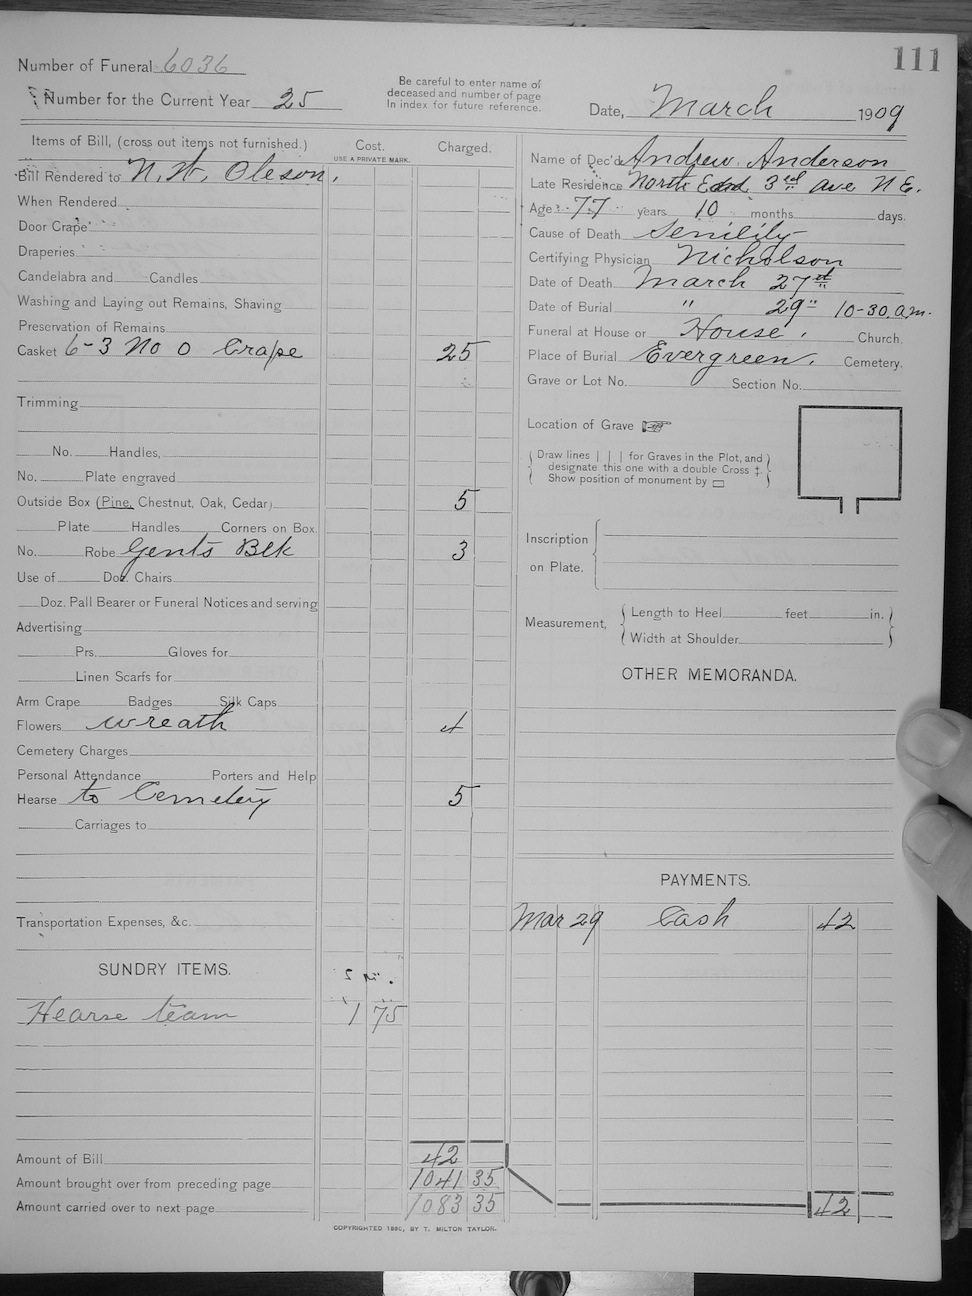 111
Number of Funeral 6036
Number for the Current Year 25
Be careful to enter name of
deceased and number of page
In index for future reference.
Date, March 1909
Items of Bill, (cross out items not furnished.) Cost. Charged.
USE A PRIVATE MARK.
Bill Rendered to N. W. Oleson.
When Rendered
Door Crape
Draperies
Candelabra and Candles
Washing and Laying out Remains, Shaving
Preservation of Remains
Casket 6-3 No 0 Crape 25
Trimming
No. Handles,
No. Plate engraved
Outside Box (Pine, Chestnut, Oak, Cedar) 5
Plate Handles Corners on Box.
No. Robe Gents Blk 3
Use of Doz. Chairs
Doz. Pall Bearer or Funeral Notices and serving
Advertising
Prs. Gloves for
Linen Scarfs for
Arm Crape Badges Silk Caps
Flowers wreath 4
Cemetery Charges
Personal Attendance Porters and Help
Hearse to Cemetery 5
Carriages to
Transportation Expenses, &c.
SUNDRY ITEMS.
Hearse team 1 75
Amount of Bill 42
Amount brought over from preceding page 1041 35
Amount carried over to next page 1083 35
COPYRIGHTED 1890, BY T. MILTON TAYLOR.
Name of Dec'd Andrew Anderson
Late Residence North 3rd ave N E.
Age 77 years 10 months days.
Cause of Death Senility
Certifying Physician Nicholson
Date of Death March 27th
Date of Burial " 29" 10-30 a.m.
Funeral at House or House. Church.
Place of Burial Evergreen. Cemetery.
Grave or Lot No. Section No.
Location of Grave
Draw lines | | | for Graves in the Plot, and
designate this one with a double Cross ‡.
Show position of monument by
Inscription
on Plate.
Measurement, Length to Heel feet in.
Width at Shoulder
OTHER MEMORANDA.
PAYMENTS.
Mar 29 Cash 42
42